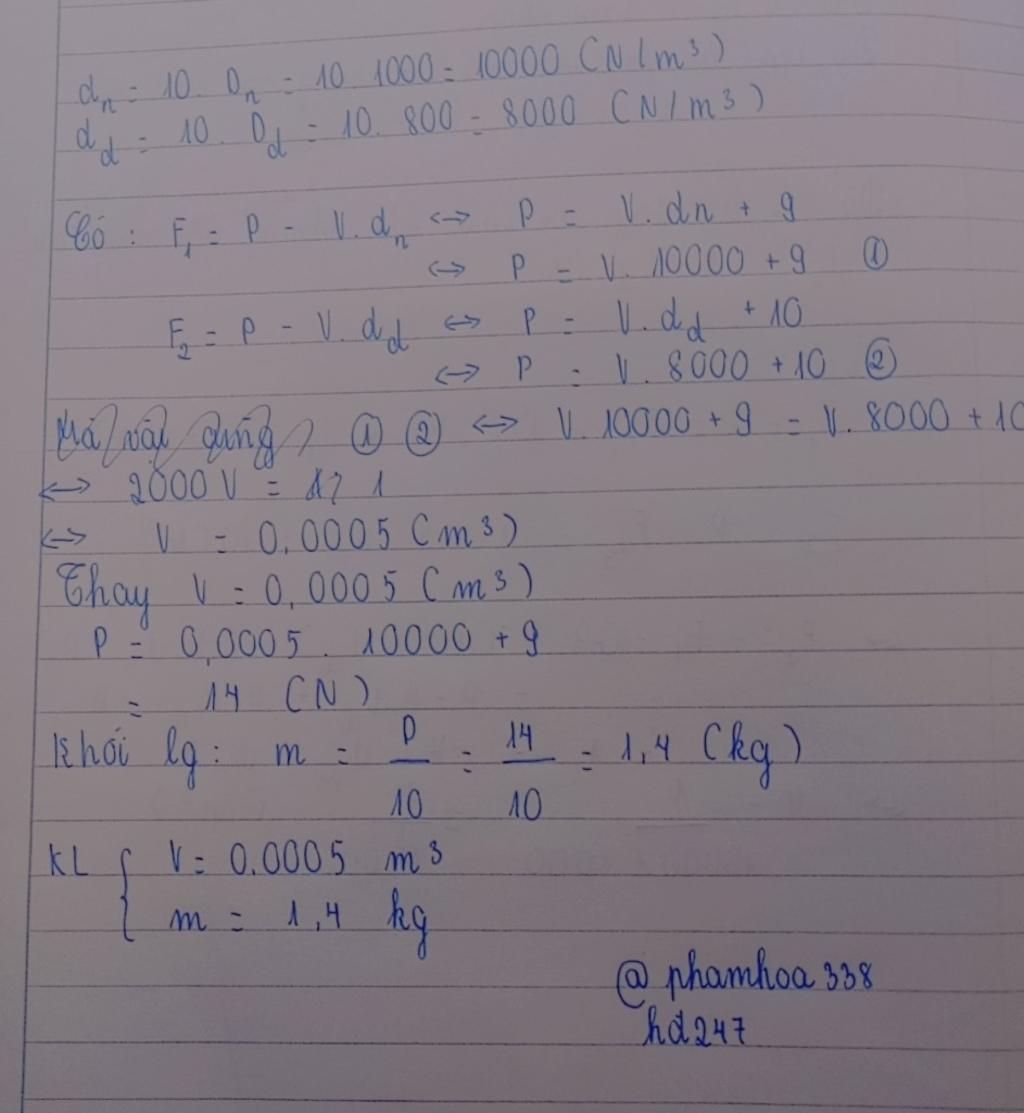 dₙ = 10. Dₙ = 10. 1000 = 10000 (N/m³)
d_d = 10. D_d = 10. 800 = 8000 (N/m³)
Có : F₁ = P - V.dₙ <-> P = V.dn + 9
<-> P = V. 10000 + 9 ①
F₂ = P - V.d_d <-> P = V.d_d + 10
<-> P = V. 8000 + 10 ②
① ② <-> V. 10000 + 9 = V. 8000 + 10
<-> 2000 V = 1
<-> V = 0,0005 (m³)
Thay V = 0,0005 (m³)
P = 0,0005 . 10000 + 9
= 14 (N)
Khối lg: m = P/10 = 14/10 = 1,4 (kg)
KL { V = 0.0005 m³
m = 1,4 kg
@phamhoa338
hd247